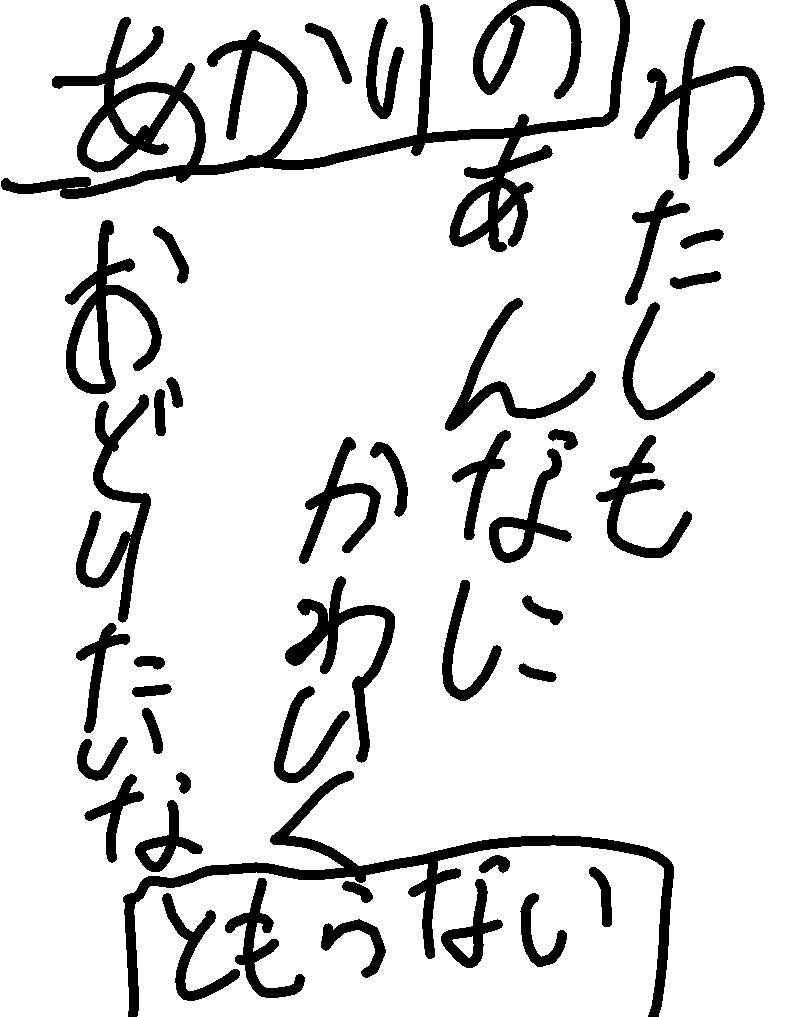 あかりの
わたしも
あんなに
かわいく
おどりたいな
ともうない